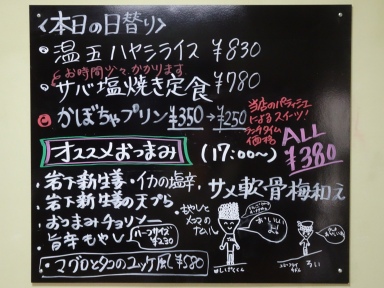 〈本日の日替り〉
・温玉ハヤシライス ¥830
お時間少々かかります
・サバ塩焼き定食 ¥780
かぼちゃプリン ¥350→¥250
当店のパティシエ
によるスイーツ!
ランチタイム
価格
オススメおつまみ (17:00〜) ALL ¥380
・岩下新生姜・イカの塩辛・サメ軟骨梅和え
・岩下新生姜の天ぷら
・おつまみチョリソー
・旨辛もやし ハーフサイズ ¥230
・もやしと
ナムル
・マグロとタコのユッケ風 ¥580
おいしいよ